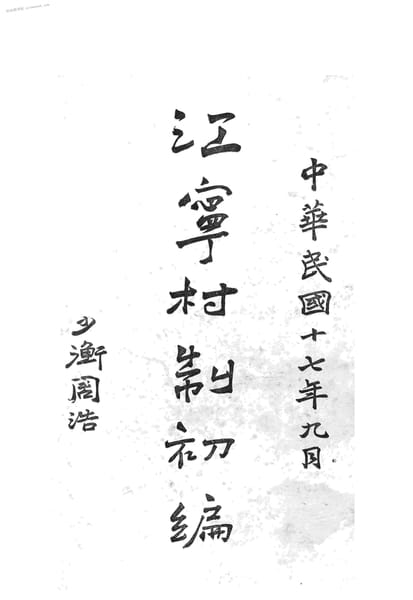 中華民國十七年九月
江寧村制初編
少衡周浩